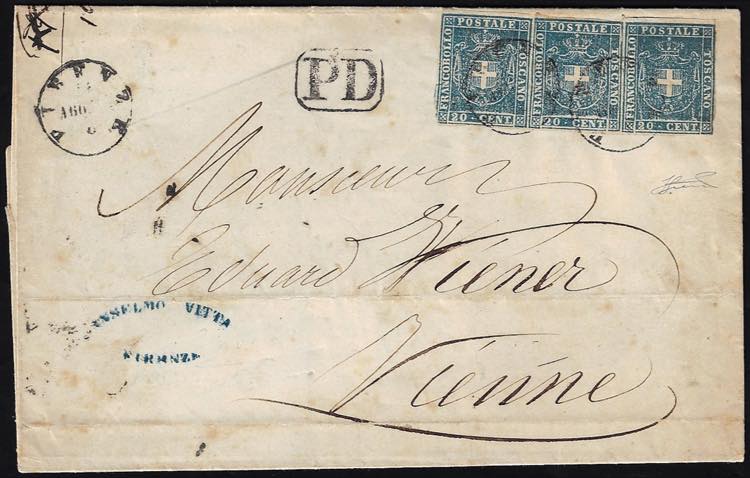 PD
FIRENZE
AGO
FRANCOBOLLO POSTALE TOSCANO
20 - CENT
FRANCOBOLLO POSTALE TOSCANO
20 - CENT
FRANCOBOLLO POSTALE TOSCANO
20 - CENT
Monsieur
Eduard Wiener
Vienne
ANSELMO VITTA
FIRENZE